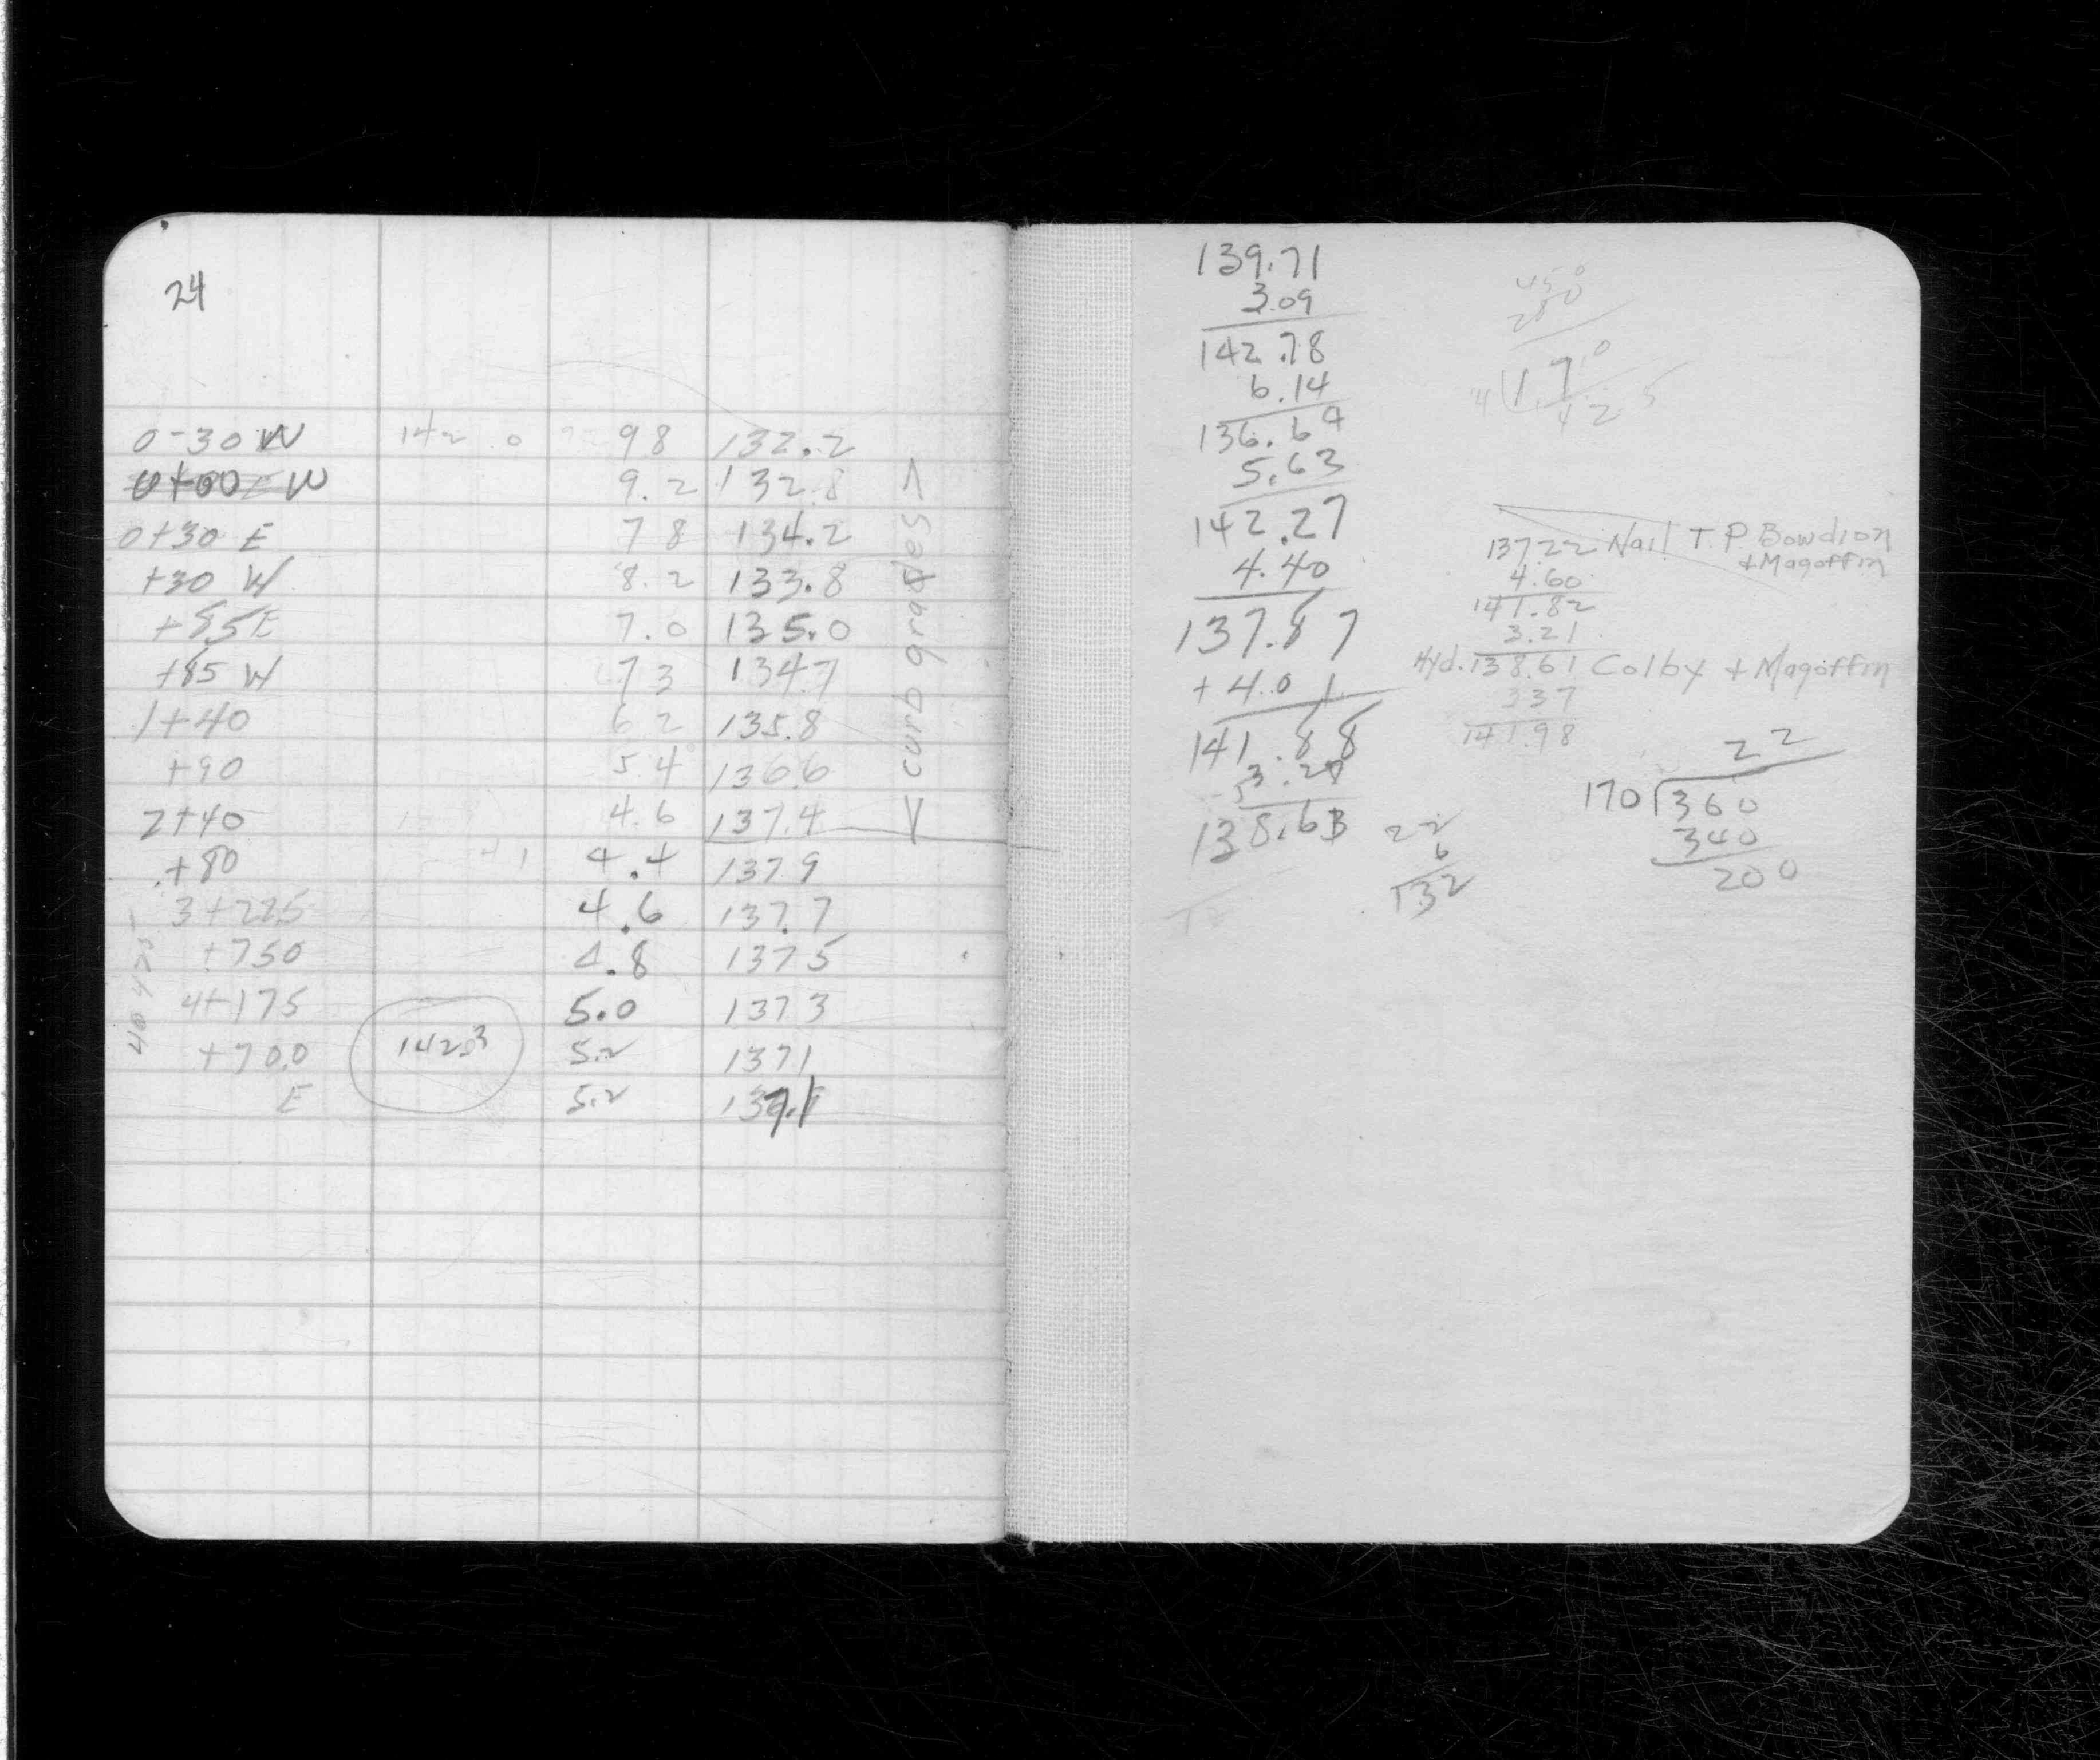 24
0-30 W 142.0 98 132.2
0+00 W 9.2 132.8
0+30 E 78 134.2
+30 W 8.2 133.8
+85 E 7.0 135.0
+85 W 73 134.7
1+40 62 135.8
+90 5.4 136.6
2+40 4.6 137.4
+80 4.4 137.9
3+225 4.6 137.7
+750 4.8 137 5
4+175 5.0 137 3
+70.0 142.3 5.2 137 1
E 5.2 137.1
<curb grades>
139.71
3.09
142.78
6.14
136.64
5.63
142.27
4.40
137.87
+4.01
141.88
138.63
45°
28
17°
4 2 5
137.22 Nail T.P. Bowdion
+Magoffin
4.60
141.82
3.21
Hyd. 138.61 Colby + Magoffin
337
141.98
22
170 360
340
200
22
6
132